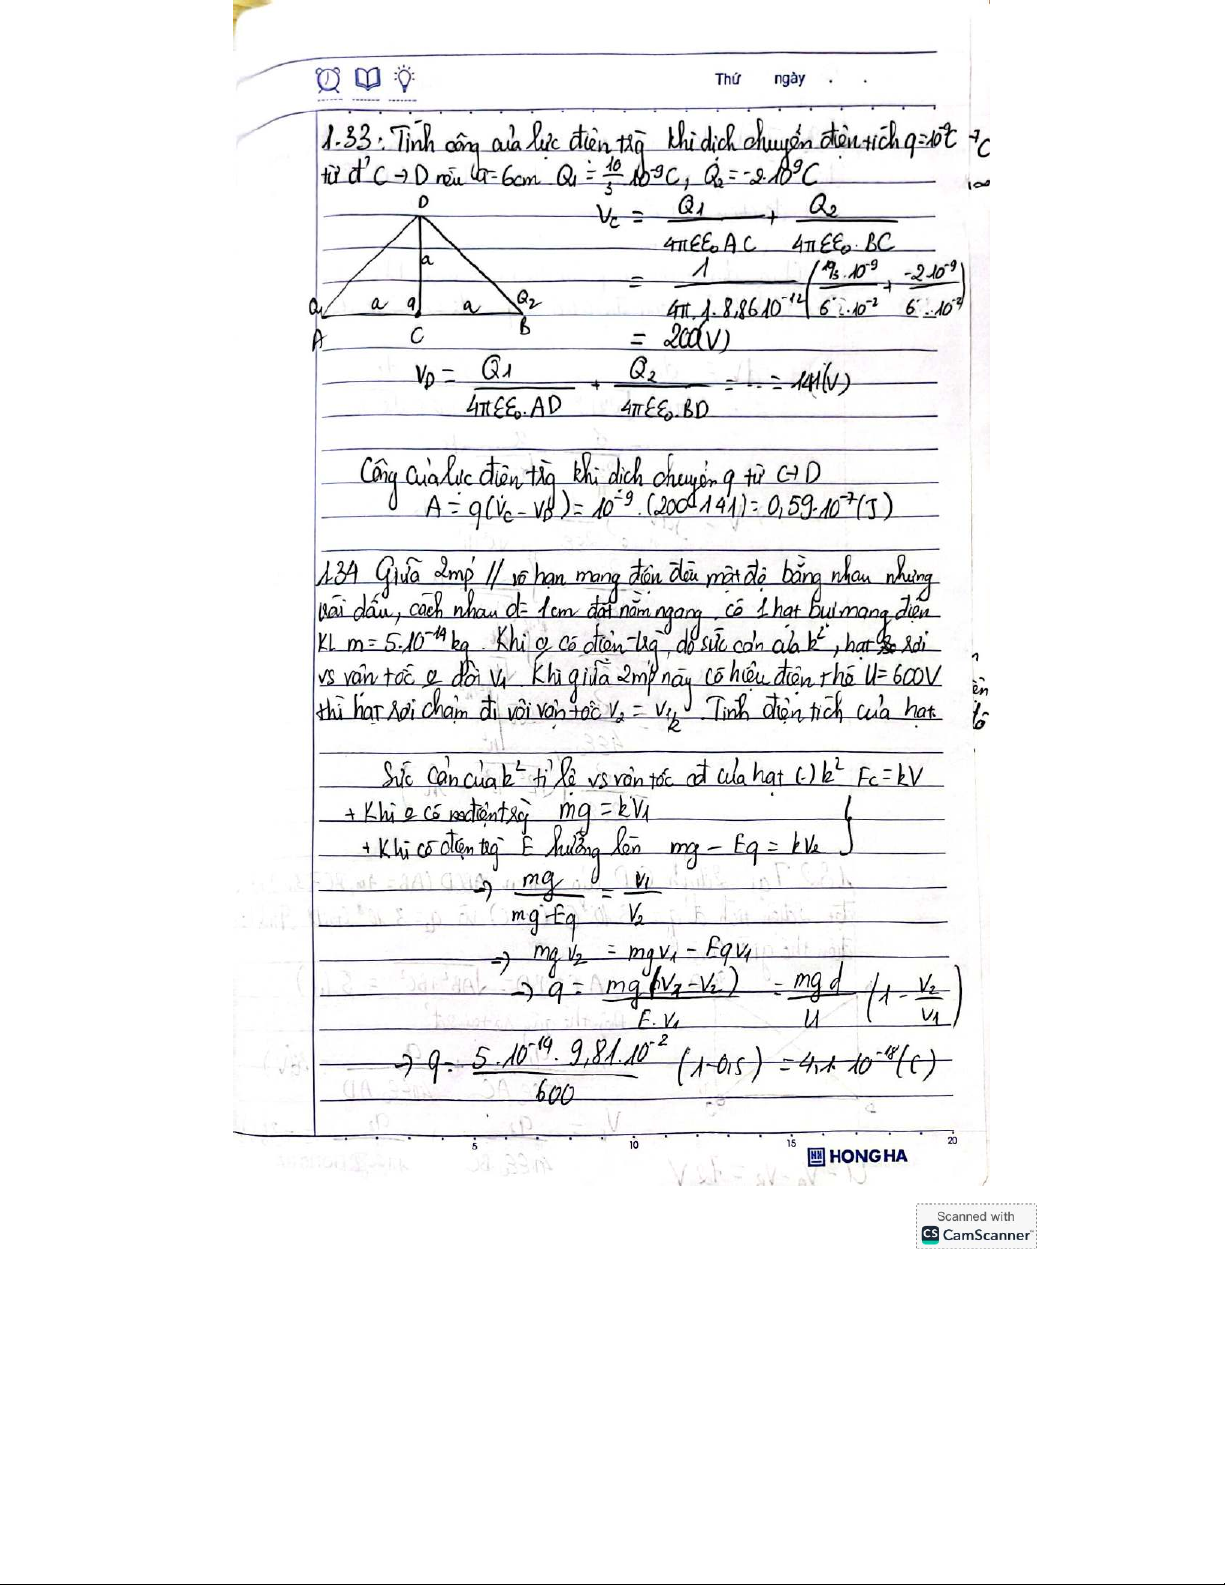 Thứ ngày . .
1.33: Tính công của lực điện trg khi dịch chuyển điện tích q=10⁻⁹C
từ đ' C → D nếu a=6cm Q₁ = 10/3 10⁻⁹C, Q₂ = -2.10⁻⁹C
D
a
Q₁ a q a Q₂
A C B
V_C = Q₁/(4πεε₀AC) + Q₂/(4πεε₀.BC)
= 1/(4π.1.8,86.10⁻¹²) (10/3.10⁻⁹/6.10⁻² + -2.10⁻⁹/6.10⁻²)
= 200(V)
V_D = Q₁/(4πεε₀.AD) + Q₂/(4πεε₀.BD) = ... = 141(V)
Công của lực điện trg khi dịch chuyển q từ C→D
A = q(V_C - V_D) = 10⁻⁹.(200-141) = 0,59.10⁻⁷(J)
1.34 Giữa 2mp // vô hạn mang điện đều mật độ bằng nhau nhưng
trái dấu, cách nhau d= 1cm đặt nằm ngang, có 1 hạt bụi mang điện
KL m= 5.10⁻¹⁴kg. Khi o có điện trg, do sức cản của k², hạt rơi
vs vận tốc o đổi v₁. Khi giữa 2mp này có hiệu điện thế U= 600V
thì hạt rơi chậm đi với vận tốc v₂ = v₁/2. Tính điện tích của hạt
Sức cản của k² tỉ lệ vs vận tốc cđ của hạt (-) k² Fc = kV
+ Khi o có điện trg mg = kV₁
+ Khi có điện trg E hướng lên mg - Eq = kV₂
⇒ mg/(mg-Eq) = V₁/V₂
⇒ mgV₂ = mgV₁ - EqV₁
⇒ q = mg(V₁-V₂)/(E.V₁) = mgd/U (1 - V₂/V₁)
⇒ q = 5.10⁻¹⁴.9,81.10⁻²/600 (1-0,5) = 4,1.10⁻¹⁸(C)
5 10 15 20
HONG HA
Scanned with
CS CamScanner